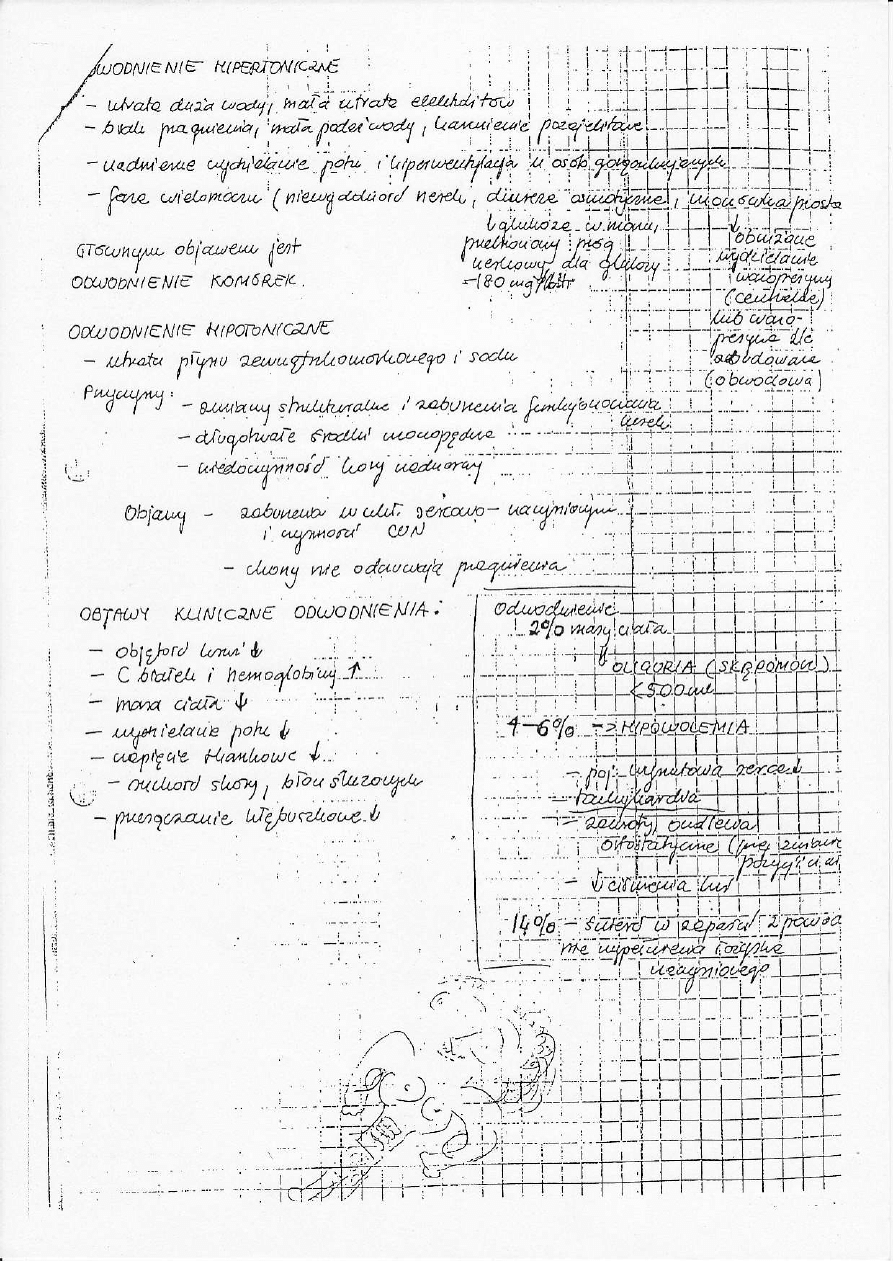 ODWODNIENIE HIPERTONICZNE
- utrata duża wody, mała utrata elektrolitów
- brak pragnienia, mała podaż wody, karmienie pozajelitowe
- nadmierne wydzielanie potu i hiperwentylacja u osób gorączkujących
- faza wielomoczu (niewydolność nerek, diureza osmotyczna, moczówka prosta
↓
obniżone
wydzielanie
wazopresyny
(centralna)
lub wazo-
presyna źle
zbudowana
(obwodowa)
↑ glukoza w moczu,
przekroczony próg
nerkowy dla glukozy
=180 mg%
Głównym objawem jest
ODWODNIENIE KOMÓREK.
ODWODNIENIE HIPOTONICZNE
- utrata płynu zewnątrzkomórkowego i sodu
Przyczyny:
- zmiany strukturalne i zaburzenia funkcjonowania
nerek
- długotrwałe środki moczopędne
- niedoczynność kory nadnerczy
Objawy - zaburzenia w ukł. sercowo-naczyniowym
i czynności CUN
- chory nie odczuwają pragnienia
OBJAWY KLINICZNE ODWODNIENIA:
- objętość krwi ↓
- C białek i hemoglobiny ↑
- masa ciała ↓
- wydzielanie potu ↓
- napięcie tkankowe ↓
- suchość skóry, błon śluzowych
- przesączanie kłębuszkowe ↓
Odwodnienie
2% masy ciała
⇓
OLIGURIA (SKĄPOMOCZ)
<500ml
4-6% -> HIPOWOLEMIA
- poj. wyrzutowa serca ↓
- tachykardia
- zawroty, omdlenia
ortostatyczne (przy zmianie
pozycji
- ↓ ciśnienia krwi
14% - śmierć w zapaści z powodu
nie wypełnienia łożyska
naczyniowego